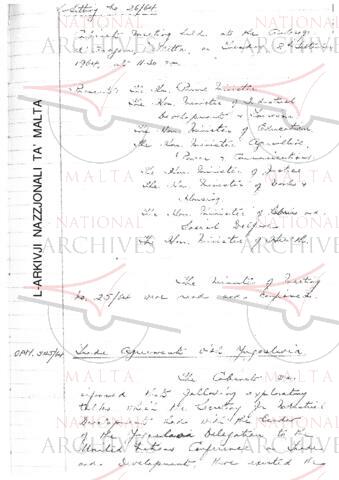 Sitting No 26/64
Cabinet meeting held at the Auberge
d'Aragon, Valletta, on
1964 at 11.30 a.m.
Present: The Hon. Prime Minister
The Hon. Minister of Industrial
Development & Tourism
The Hon. Minister of Education
The Hon. Minister Agriculture,
Power & Communications
The Hon. Minister of Justice
The Hon. Minister of Works &
Housing
The Hon. Minister of Labour and
Social Welfare
The Hon. Minister of Health.
The Minutes of Meeting
No. 25/64 were read and confirmed.
OPM. 345/64 Trade Agreement with Yugoslavia
The Cabinet was
informed that following exploratory
talks which the Secretary for Industrial
Development had with the leader
of the Yugoslav Delegation to the
United Nations Conference on Trade
and Development, there existed the
L-ARKIVJI NAZZJONALI TA' MALTA
NATIONAL ARCHIVES MALTA